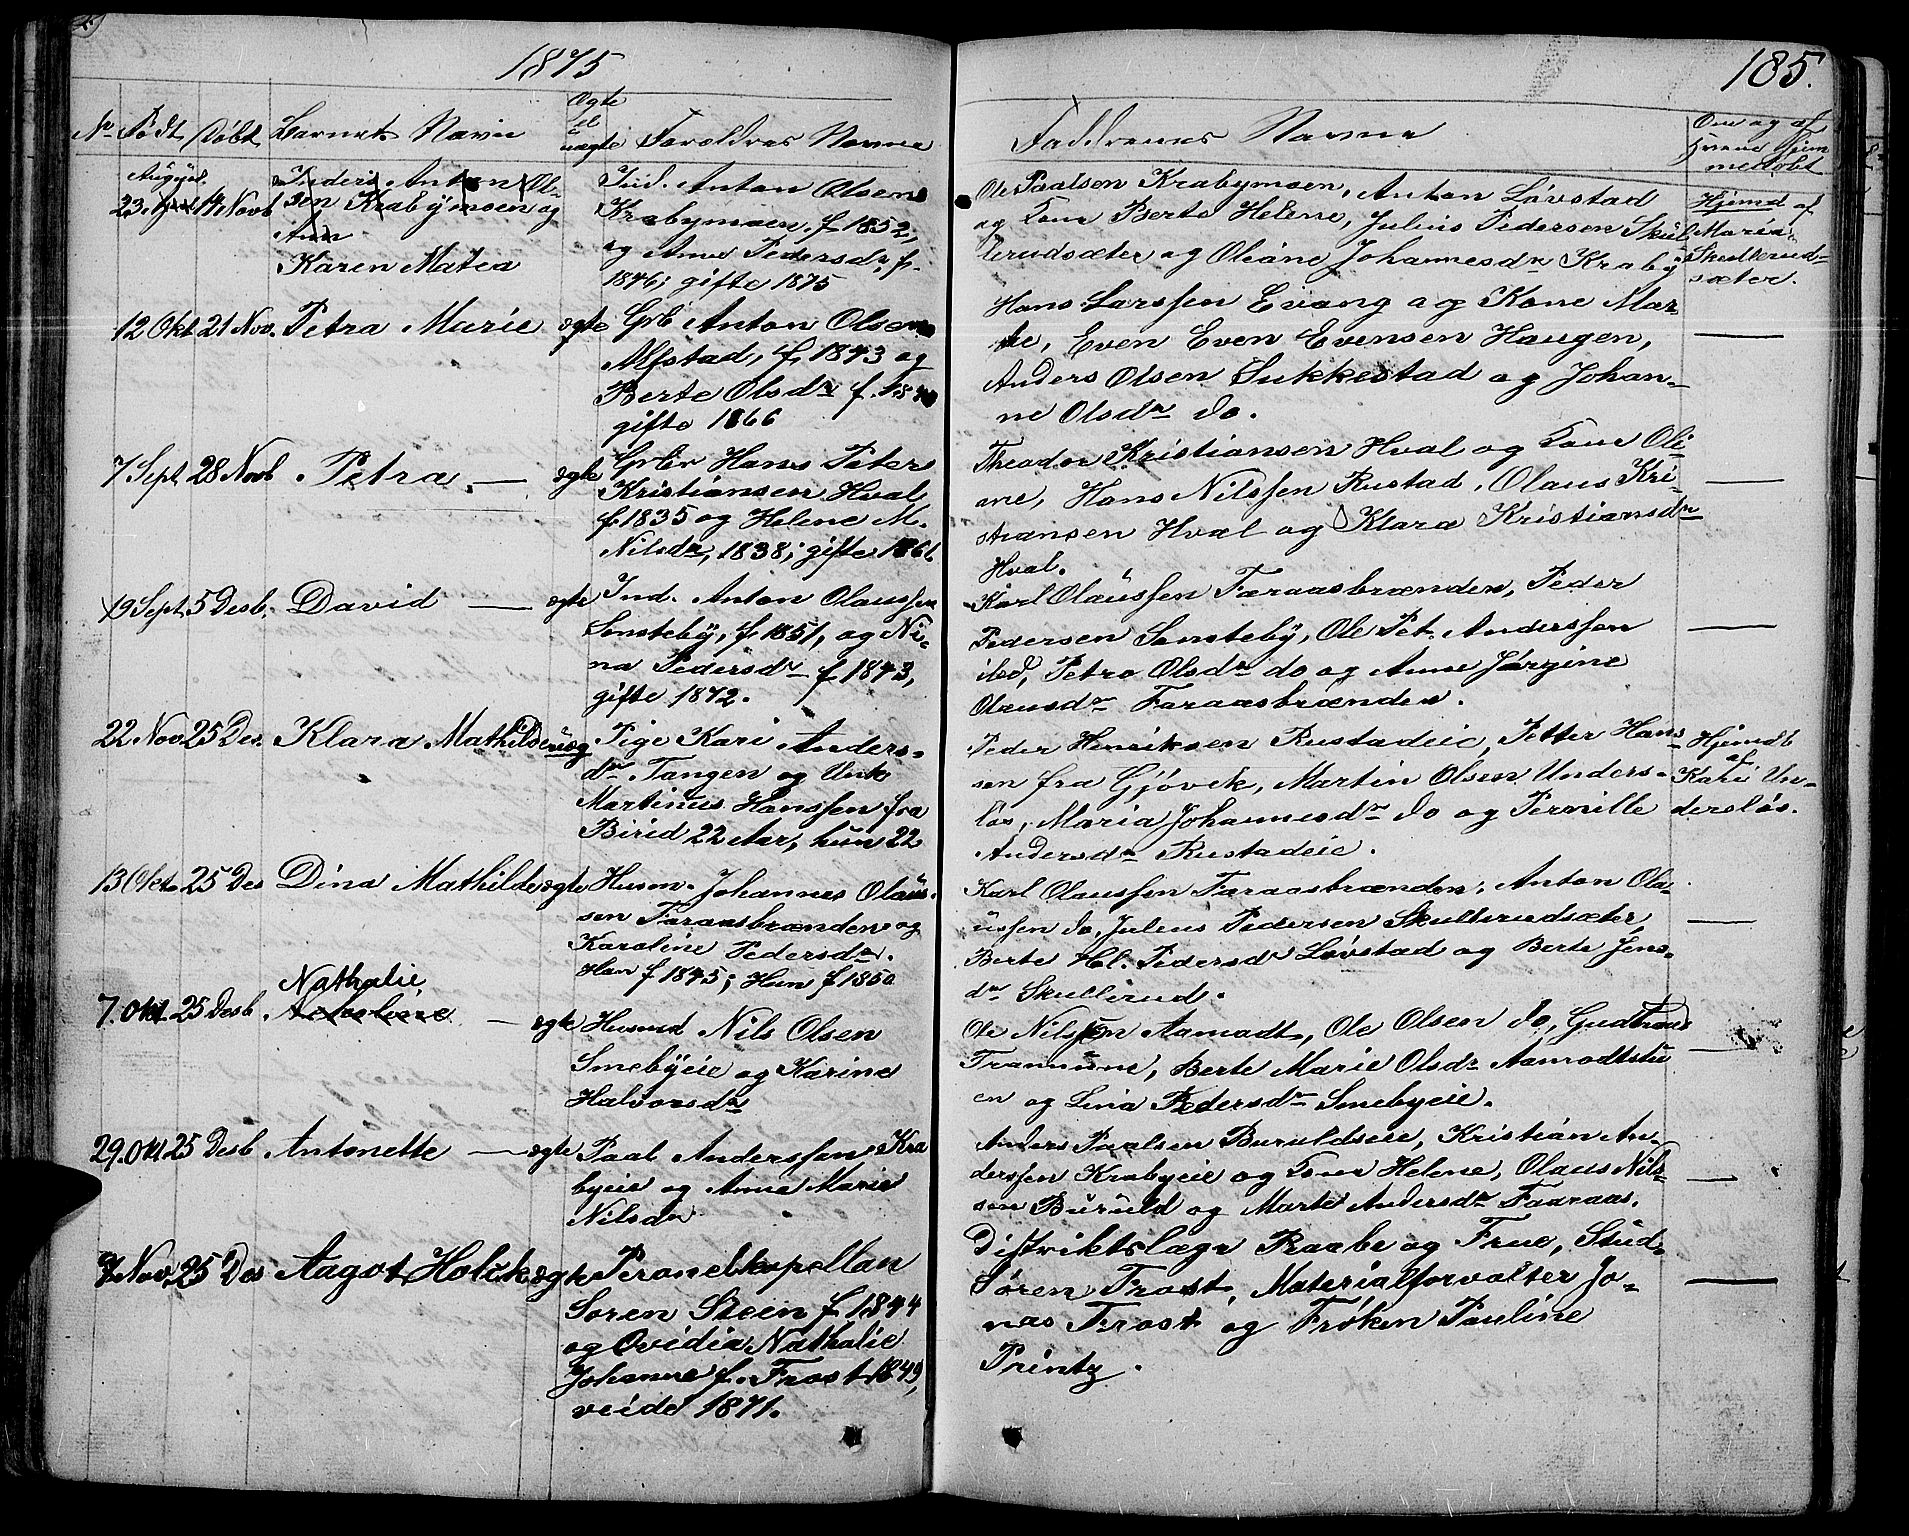 1875
185.
No Født Døbt Barnets Navn Ægte el uægte Forældres Navne
Faddrenes Navne
Om og af hvem hjemmedøbt
August
23 14 Novb Anton Ol-
sen Krabymoen og
Karen Matea
Ind. Anton Olsen
Krabymoen f. 1852,
og Anne Pedersdr f.
1846; gifte 1875
Ole Paalsen Krabymoen, Anton Løvstad
og Kone Berte Helene, Julius Pedersen Skul-
lerudsæter og Oleane Johannesdr Kraby
Hjemd af
Maria
Skullerud-
sæter.
12 Okt 21 Nov. Petra Marie ægte
Grb Anton Olsen
Alfstad, f. 1843 og
Berte Olsdr f.
gifte 1866
Hans Larssen Evang og Kone Mar-
te, Even Even Evensen Haugen,
Anders Olsen Sukkestad og Johan-
ne Olsdr do.
7 Sept 28 Novb Petra — ægte
Grbr Hans Peter
Kristiansen Hval
f. 1835 og Helene M.
Nilsdr, 1838; gifte 1861
Theodor Kristiansen Hval og Kone Oli-
ane, Hans Nilssen Rustad, Olaus Kri-
stiansen Hval og Klara Kristiansdr
Hval.
19 Sept 5 Desb. David — ægte
Ind. Anton Olaussen
Sønsteby, f. 1851, og Ni-
na Pedersdr f. 1843,
gifte 1872.
Karl Olaussen Faraasbrænden, Peder
Pedersen Sønsteby, Ole Pet. Anderssen
ibd, Petra Olsdr do og Anne Jørgine
Olausdr Faraasbrænden.
22 Nov 25 Des. Klara Mathilde uæg
Pige Kari Anders-
dr Tangen og Unk
Martinus Hanssen fra
Birid 22 Aar, hun 22
Peder Henriksen Rustadeie, Petter Hans-
sen fra Gjøvik, Martin Olsen Unders-
løs, Maria Johannesdr do og Pernille
Andersdr Rustadeie.
Hjemdt
af
Kari Un-
dersløs.
13 Okt. 25 Des Dina Mathilde ægte
Husm. Johannes Olaus-
sen Faraasbrænden og
Karoline Pedersdr.
Han f 1845; Hun f 1850
Karl Olaussen Faraasbrænden, Anton Ola-
ussen do, Julius Pedersen Skullerudsæter,
Berte Hel. Pedersdr Løvstad og Berte Jens-
dr Skullerud.
Nathalie
7. Okt. 25 Desb. — ægte
Husmd Nils Olsen
Smebyeie og Karine
Halvorsdr
Ole Nilssen Aamodt, Ole Olsen do, Gudbrand
Tranmune, Berte Marie Olsdr Aamodtstu
en og Lina Pedersdr Smebyeie.
29. Okt 25 Desb Antonette — ægte
Paal Anderssen Kra
byeie og Anne Marie
Nilsdr
Anders Paalsen Buruldseie, Kristian An-
derssen Krabyeie og Kone Helene, Olaus Nils-
sen Buruld og Marte Andersdr Faaraas.
Nov. 25 Des Aagot Holck ægte
Personelkapellan
Søren Steen f. 1844
og Ovedia Nathalie
Johanne f. Frost 1849,
viede 1871.
Distriktslæge Raabe og Frue, Stud.
Søren Frost, Materialforvalter Jo-
nas Frost og Frøken Pauline
Printz.